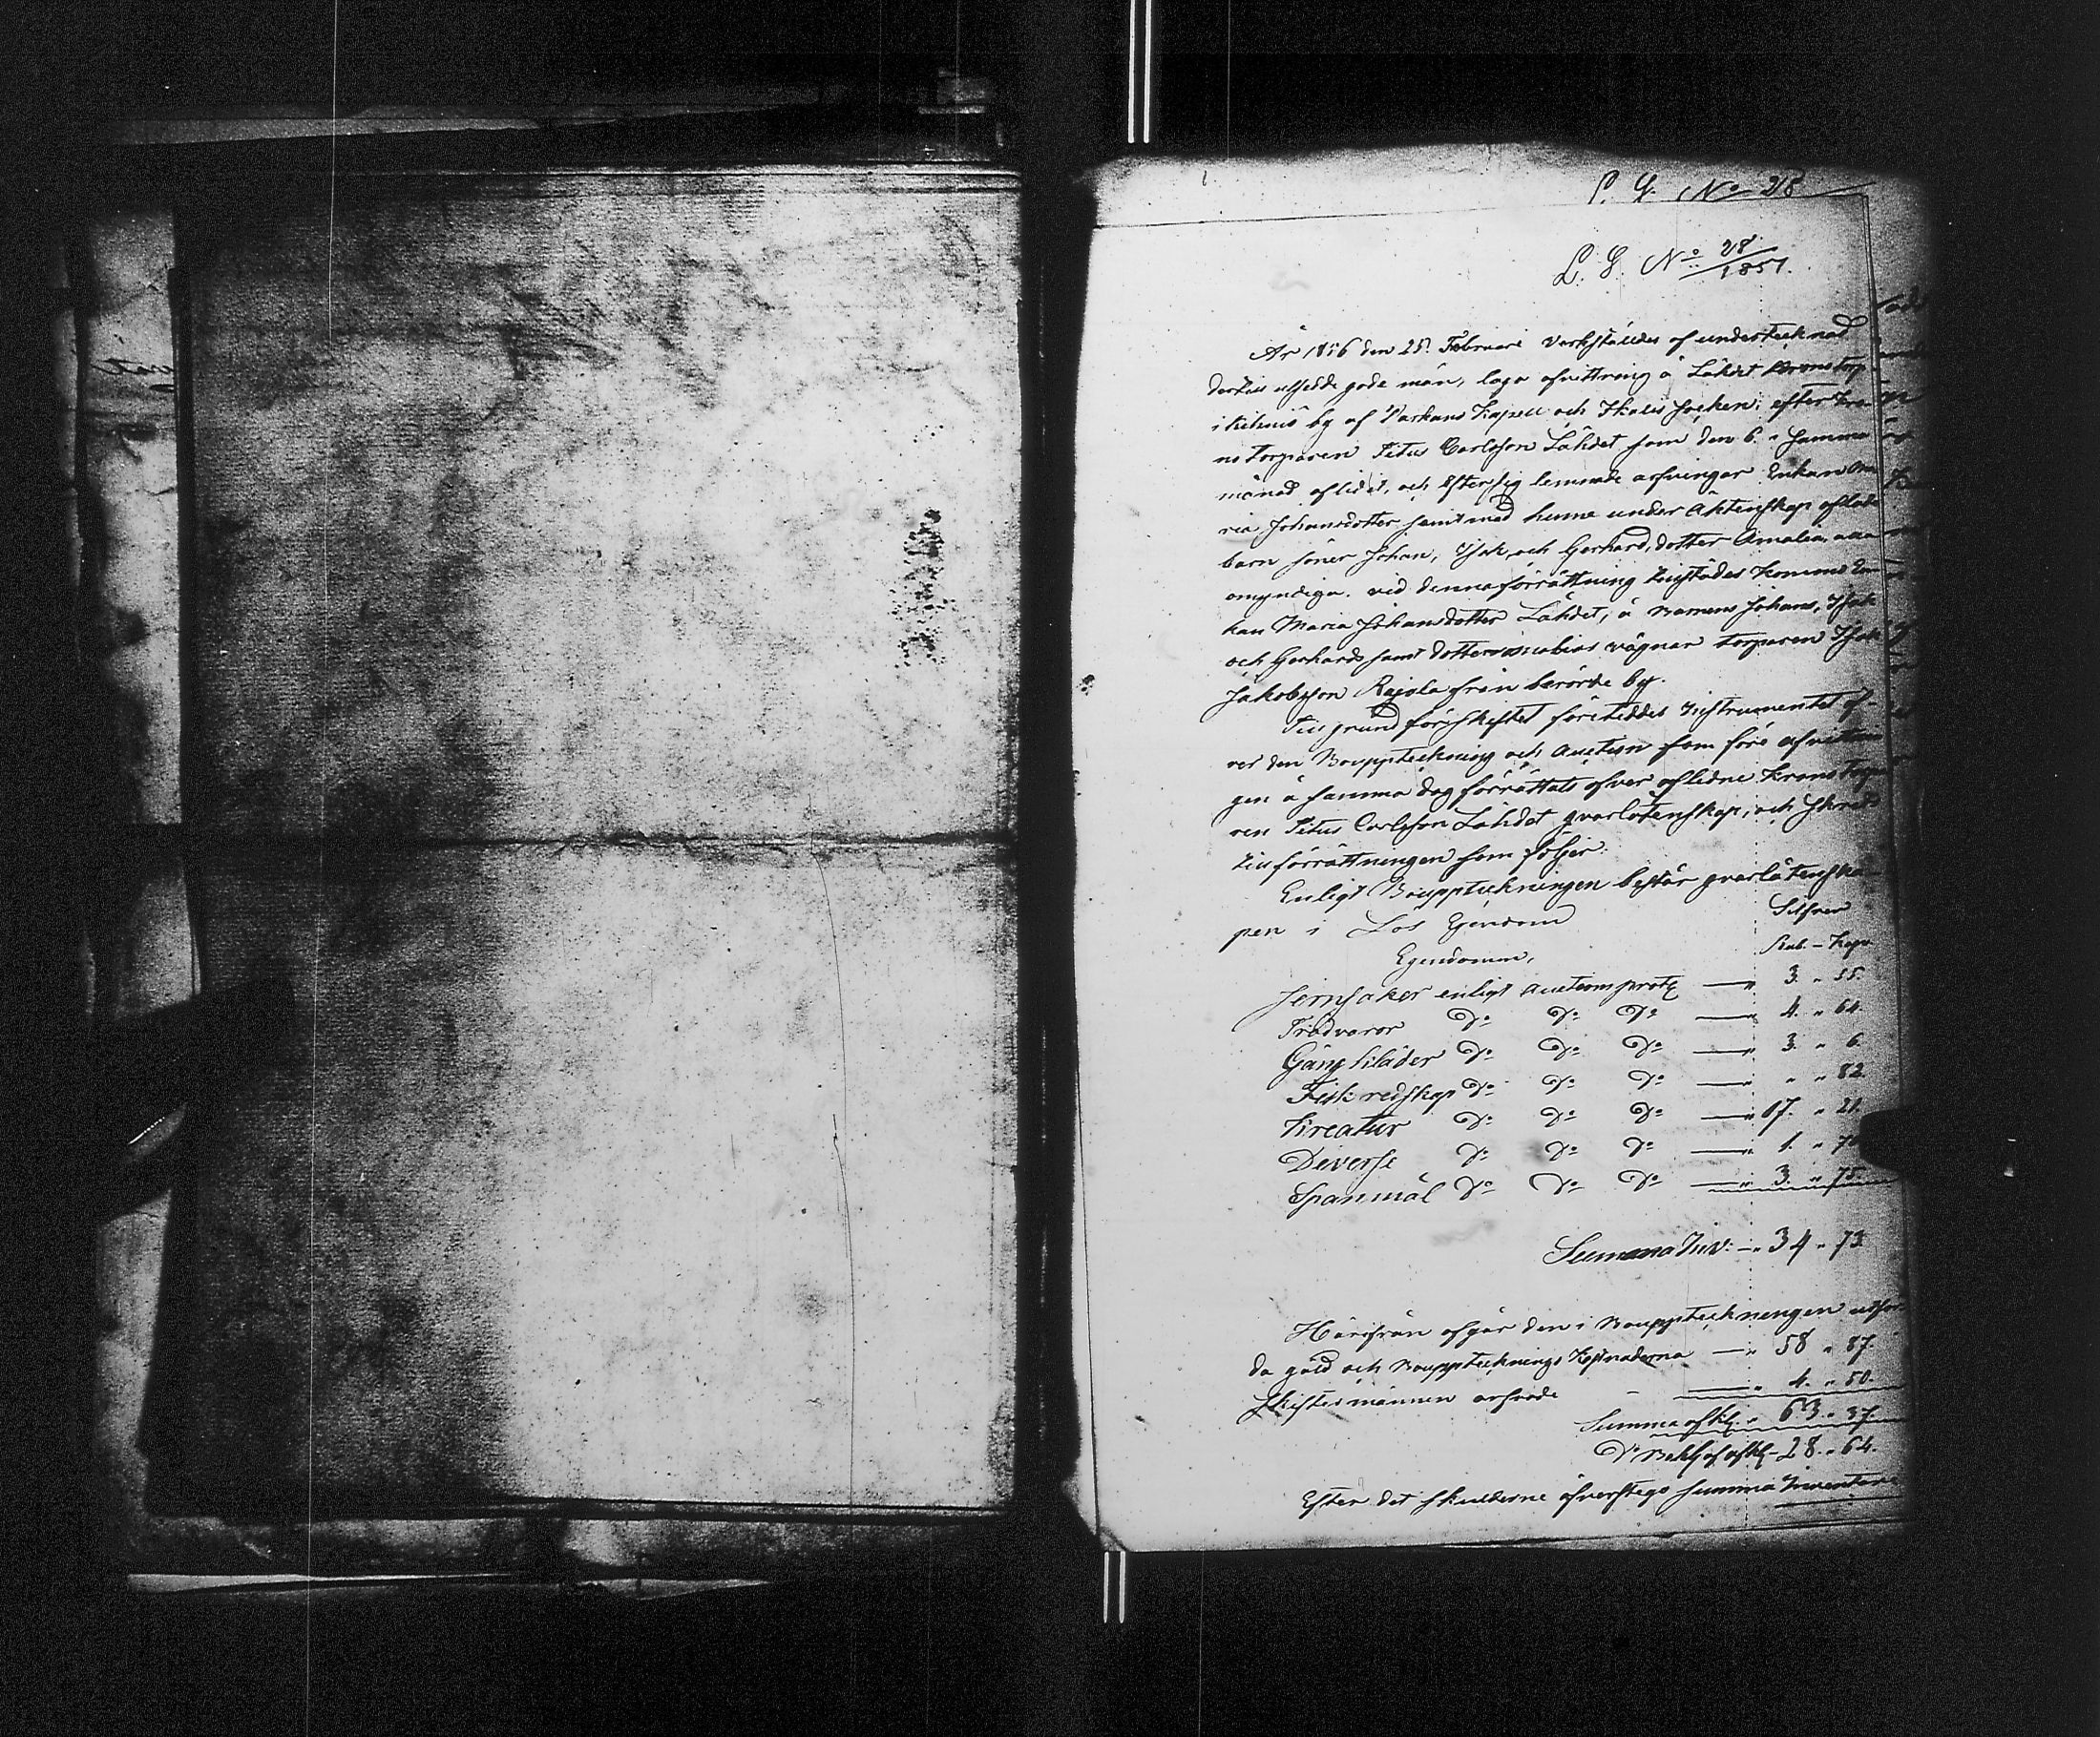 L. G. No 28
L. G. No 28/1857.
År 1856 den 25. Februari verkstäldes af undertecknad
dertill utsedde gode män, laga afvittring å Lähdet Kronotorp
i Kihniö by af Parkano Kapell och Ikalis Socken; efter Kro-
no Torparen Titus Carlsson Lähdet som den 6. i samma
månad aflidit, och efter sig lemnade arfvingar Enkan Ma
ria Johansdotter samt med henne under äktenskap aflade
barn söner Johan, Isak, och Gerhard, dotter Amalia, alla
omyndiga. vid denna förrättning tillstädes kommo En
kan Maria Johansdotter Lähdet, å barnens Johans, Isak
och Gerhards samt dotterns vägnar torparen Isak
Jakobsson Rajola från berörde by.
Till grund för skiftet företeddes Instrumentet öf-
ver den Bouppteckning och Auction som före afvittrin
gen å samma dag förrättats öfver aflidne Krono Torpa
ren Titus Carlsson Lähdet qvarlåtenskap; och skred
till förrättningen som följer:
Enligt Bouppteckningen består qvarlåtenska-
pen i Lös Egendom
Silfver
Egendomen,
Rub. - Kop.
Jernsaker enligt auctions prot. — " 3. " 55.
Trädvaror Do Do Do — " 4. " 64.
Gångkläder Do Do Do — " 3. " 6.
Fisk redskap Do Do Do — " " " 82
Kreatur Do Do Do — " 17. " 21.
Diverse Do Do Do — " 1. " 70
Spanmål Do Do Do — " 3. " 75.
Summa Inv: — " 34 " 73
Härifrån afgår den i Bouppteckningen utför
da gäld och Bouppteckningskostnaderna — " 58 " 87.
Skiftesmännen arfvode — " 4. " 50.
Summa afkl. " 63 " 37.
Do af afkl - 28. " 64.
Efter det skulderne öfverstego Summa Inventarii